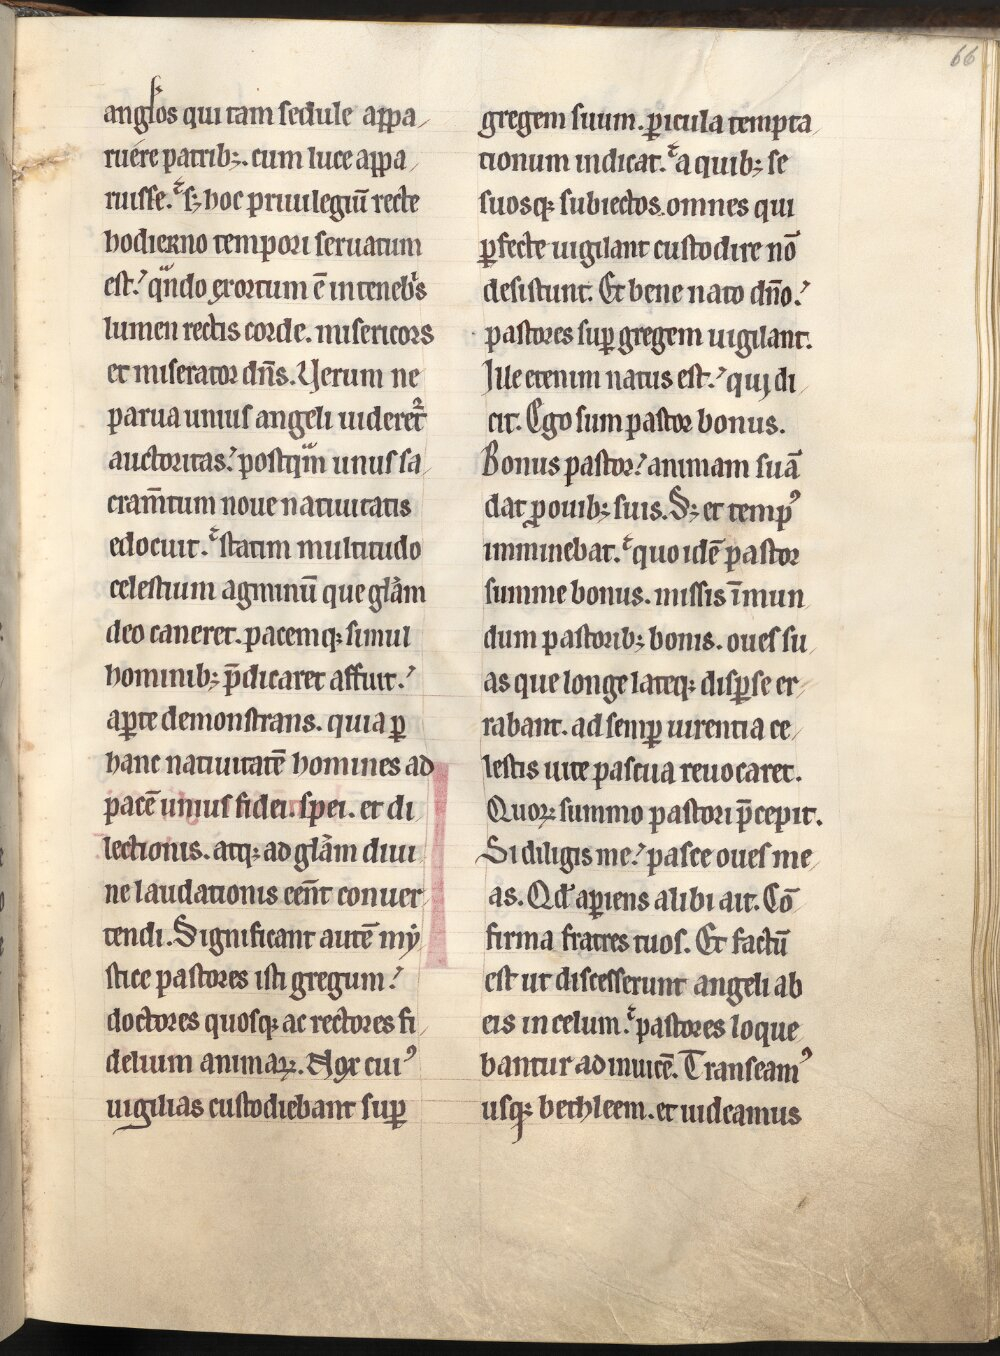 66
anglos qui tam sedule appa
ruere patrib;. cum luce appa
ruisse. s; hoc priuilegiū recte
hodierno tempori seruatum
est? qͣndo exortum ē in tenebͥs
lumen rectis corde. misericors
et miserator dn̄s. Uerum ne
parua unius angeli uideret᷑
auctoritas? postqͣm unus sa
cram̄tum noue natiuitatis
edocuit. statim multitudo
celestium agminū que gl̄am
deo caneret. pacemq; simul
hominib; p̄dicaret affuit?
aꝑte demonstrans. quia ꝑ
hanc natiuitatē homines ad
pacē unius fidei. spei. et di
lectionis. atq; ad gl̄am diui
ne laudationis eēnt conuer
tendi. Significant autē mẏ
stice pastores isti gregum?
doctores quosq; ac rectores fi
delium animaꝝ. Nox cuiꝰ
uigilias custodiebant suꝑ
gregem suum. ꝑicula tempta
tionum indicat. a quib; se
suosq; subiectos. omnes qui
ꝑfecte uigilant custodire nō
desistunt. Et bene nato dn̄o?
pastores suꝑ gregem uigilant.
Ille etenim natus est? qui di
cit. Ego sum pastor bonus.
Bonus pastor? animam suā
dat ꝓ ouib; suis. S; et tempꝰ
imminebat. quo idē pastor
summe bonus. missis ī mun
dum pastorib; bonis. oues su
as que longe lateq; disꝑse er
rabant. ad semꝑ uirentia ce
lestis uite pascua reuocaret.
Quoꝝ summo pastori p̄cepit.
Si diligis me? pasce oues me
as. Qd̄ aꝑiens alibi ait. Cō
firma fratres tuos. Et factū
est ut discesserunt angeli ab
eis in celum. pastores loque
bantur ad inuicē. Transeamꝰ
usq; bethleem. et uideamus